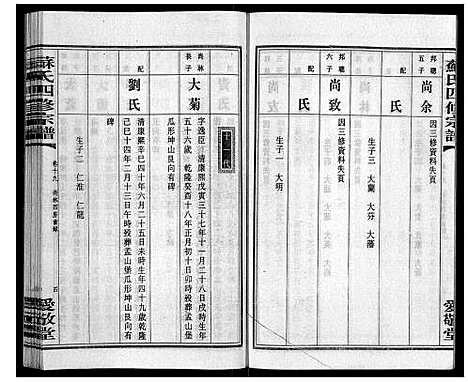 蘇氏四修宗譜
愛敬堂
邦聰
五子
尚余
因三修資料失頁
配
氏
生子三 大蘭 大芬 大藩
邦聰
六子
尚致
因三修資料失頁
配
氏
生子一 大明
十二代
尚林
長子
大菊
字逸臣 清康熙戊寅三十七年十一月二十八日戌時生
五十六歲 乾隆癸酉十八年正月初十日卯時歿葬孟山堡
瓜形坤山艮向有碑
配
劉氏
清康熙辛巳四十年六月二十五日未時生年四十九歲乾隆
己巳十四年二月十三日午時歿葬孟山堡瓜形坤山艮向有
碑
生子二 仁淮 仁龍
蘇氏四修宗譜
卷十九
五
愛敬堂